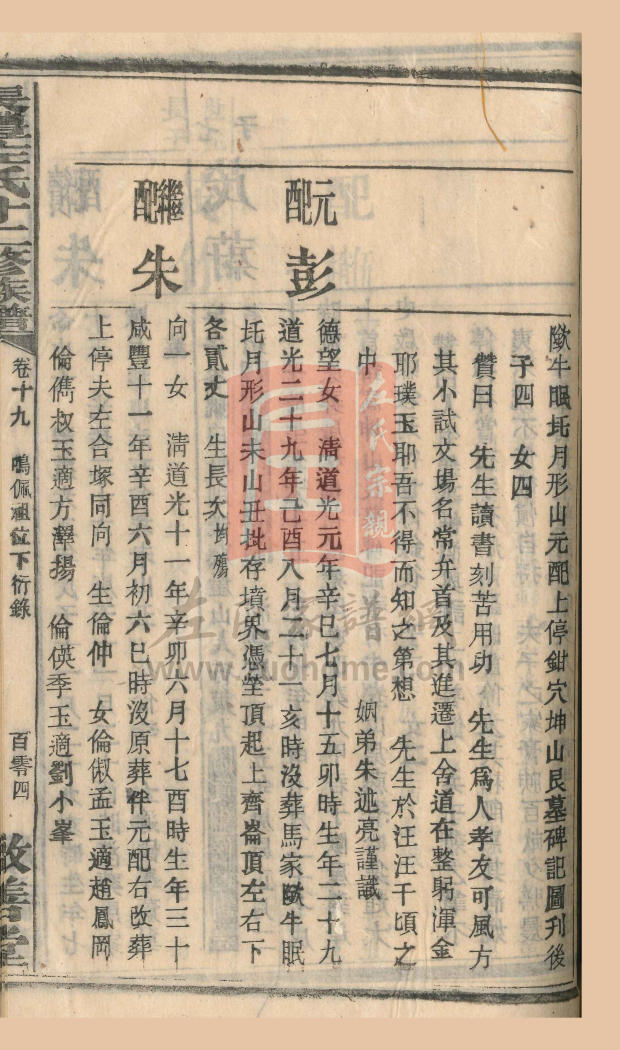 歐牛眠圫月形山元配上停鉗穴坤山艮墓碑記圖刋後
子四　女四
贊曰　先生讀書刻苦用功　先生爲人孝友可風方
其小試文場名常弁首及其進遷上舍道在整躬渾金
耶璞玉耶吾不得而知之第想　先生於汪汪千頃之
中　姻弟朱述亮謹識
元配
彭
德望女　淸道光元年辛巳七月十五卯時生年二十九
道光二十九年己酉八月二十二亥時沒葬馬家歐牛眠
圫月形山未山丑批存墳界憑塋頂起上齊崙頂左右下
各貳丈　生長次均殤
繼配
朱
向一女　淸道光十一年辛卯六月十七酉時生年三十
咸豐十一年辛酉六月初六巳時沒原葬伴元配右改葬
上停夫左合塚同向　生倫仲　女倫俶孟玉適趙鳳岡
倫儁叔玉適方澤揚　倫偀季玉適劉小峯
左氏十二修族譜
卷十九　鳴佩祖位下衍錄
百零四
敦善堂
左氏宗親
左氏家譜網
www.zuohome.com